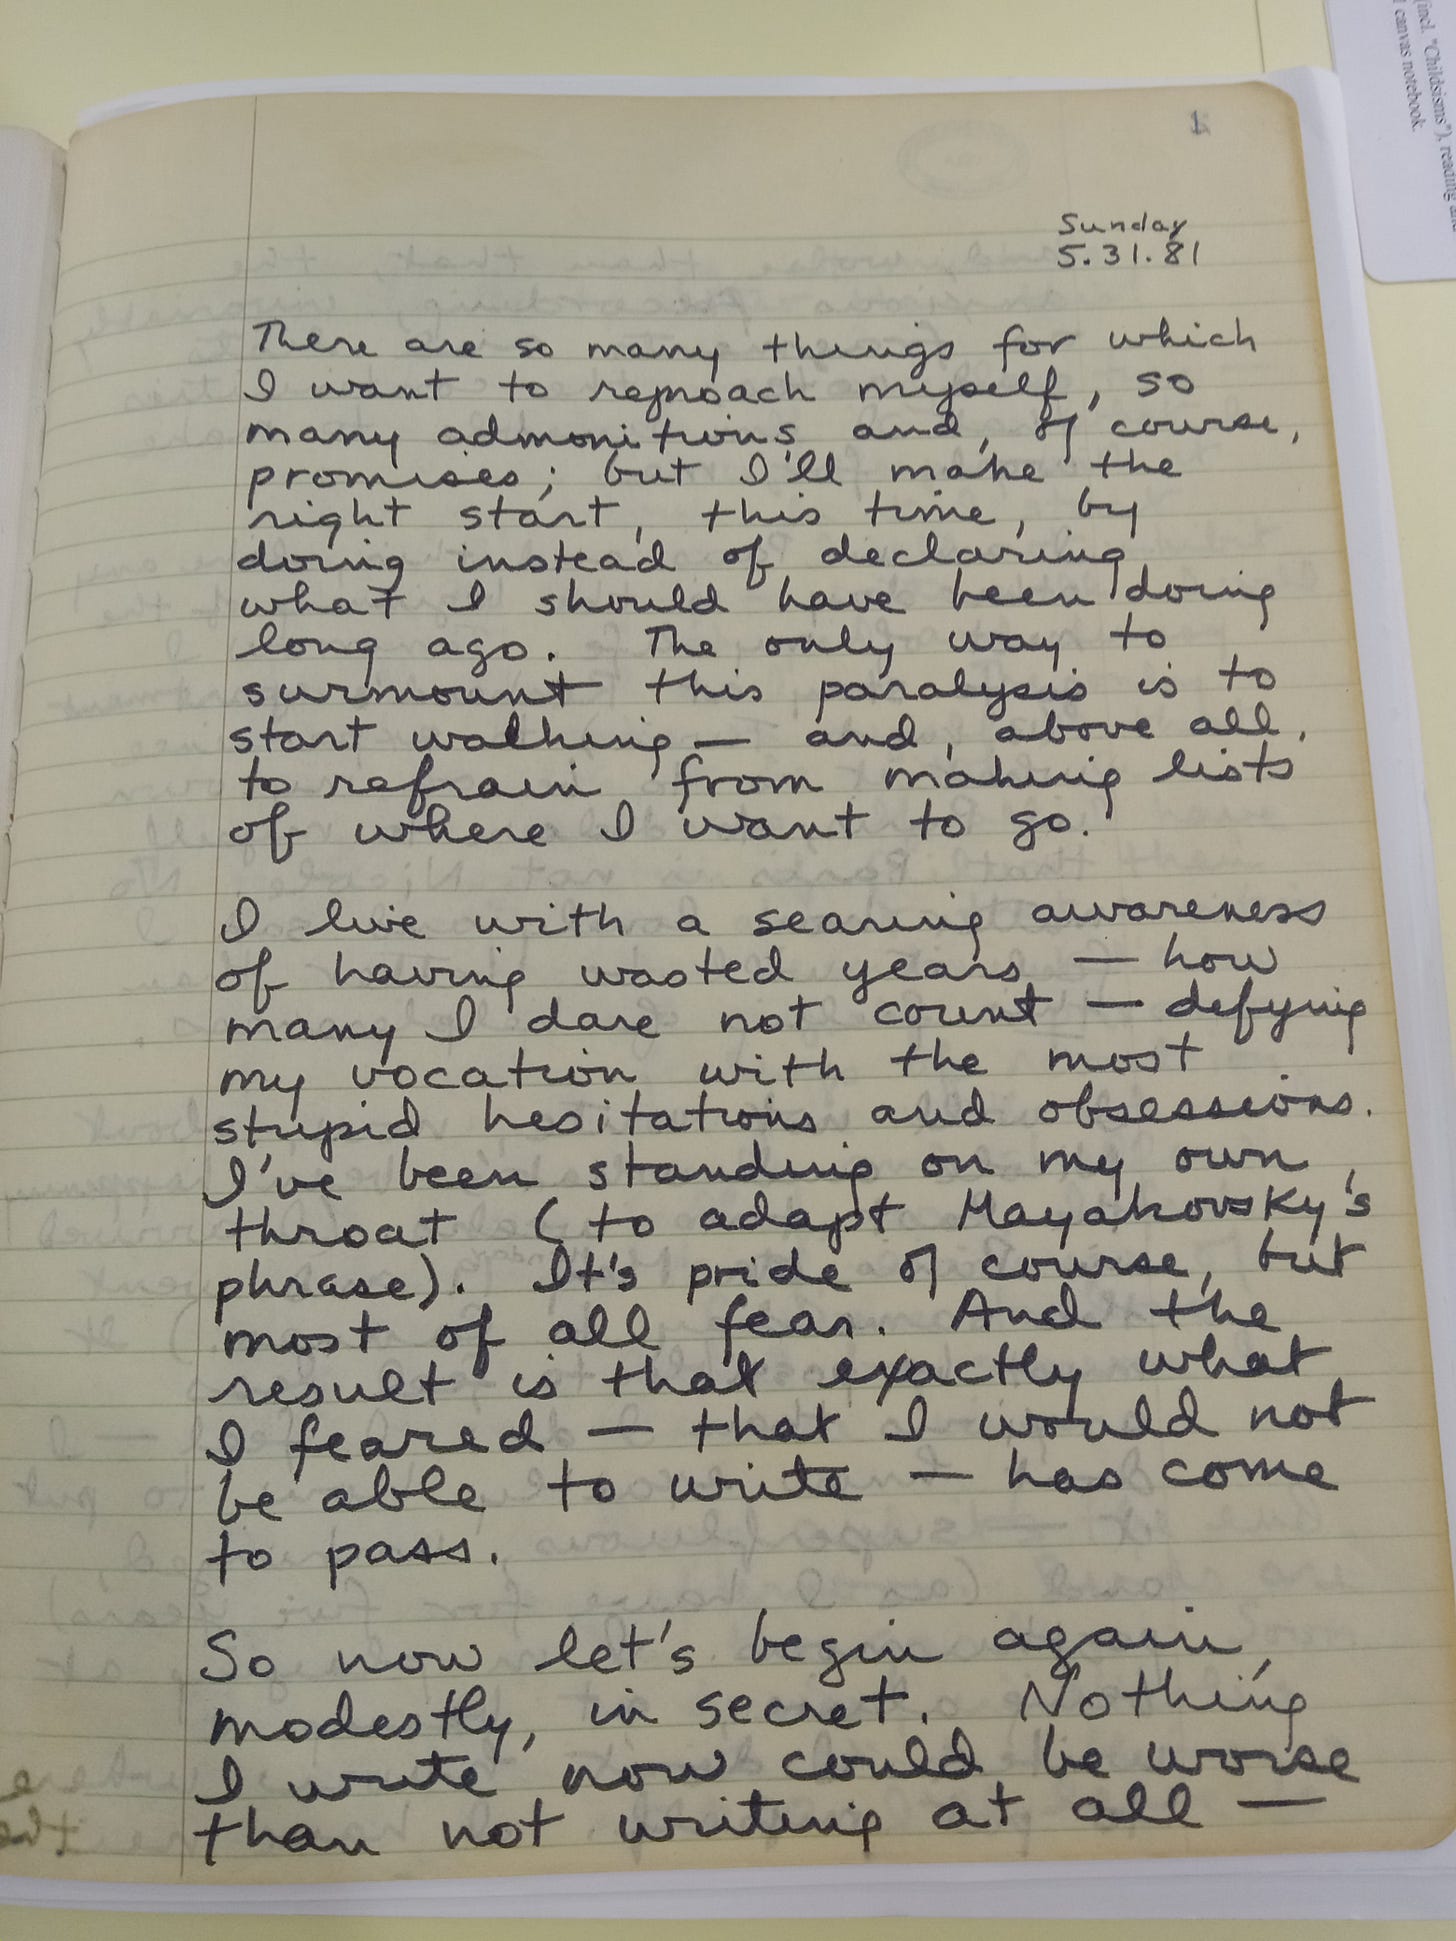 (incl. "Childsisms"), reading and
1 canvas notebook.
1
Sunday
5.31.81
There are so many things for which
I want to reproach myself, so
many admonitions and, of course,
promises; but I'll make the
right start, this time, by
doing instead of declaring
what I should have been doing
long ago. The only way to
surmount this paralysis is to
start walking — and, above all,
to refrain from making lists
of where I want to go.
I live with a searing awareness
of having wasted years — how
many I dare not count — defying
my vocation with the most
stupid hesitations and obsessions.
I've been standing on my own
throat (to adapt Mayakovsky's
phrase). It's pride of course, but
most of all fear. And the
result is that exactly what
I feared — that I would not
be able to write — has come
to pass.
So now let's begin again,
modestly, in secret. Nothing
I write now could be worse
than not writing at all —